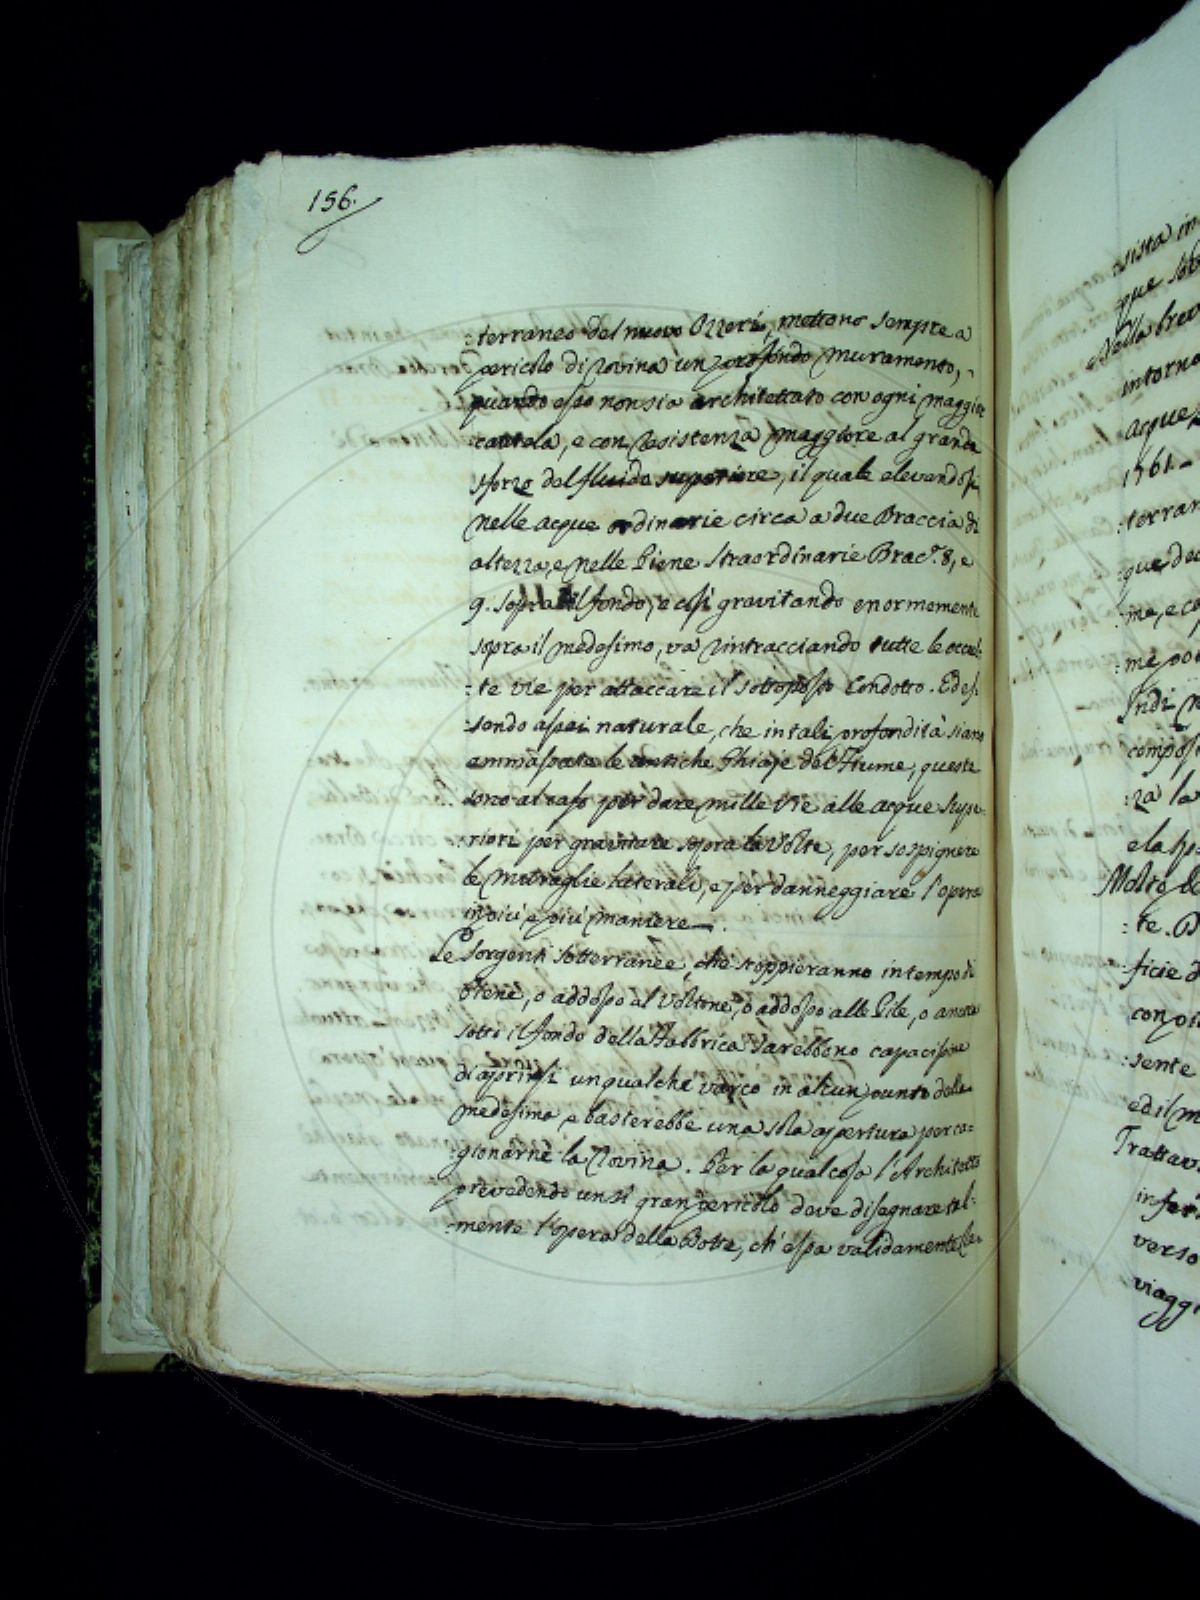 156.
:terraneo del nuovo Ozzeri, mettono sempre a
pericolo di rovina un profondo muramento,
quando esso non sia architettato con ogni maggior
cautela, e con resistenza maggiore al grande
sforzo del fluido superiore, il quale elevandosi
nelle acque ordinarie circa a due Braccia di
altezza, e nelle Piene straordinarie Brac.ª 8, e
9. sopra il fondo, e così gravitando enormemente
sopra il medesimo, va rintracciando tutte le occul:
:te vie per attaccare il sottoposto Condotto. Ed es:
:sendo assai naturale, che in tali profondità siano
ammassate le antiche Ghiaje del Fiume, queste
sono al caso per dare mille vie alle acque supe:
:riori per gravitare sopra la Volta, per sospignere
le muraglie laterali, e per danneggiare l'opera
in più e più maniere.
Le sorgenti sotterranee, che stoppieranno in tempo di
Piene, o addosso al Voltone, o addosso alle Pile, o ancora
sotto il fondo della Fabbrica sarebbono capacissime
di aprirsi un qualche varco in alcun punto della
medesima e basterebbe una sola apertura per ca=
:gionarne la rovina. Per la qual cosa l'Architetto
prevedendo un sì gran pericolo deve disegnare tal:
:mente l'opera della Botte, ch'essa validamente re:
:sista in
que
della brev
intorno
acque
1761.
:terran
que
:me, e co
:me
Indi
compos
:za la
Molto
:te.
:ficie d
con
:sente
ed il m
Trattav
infer
verso
viagg